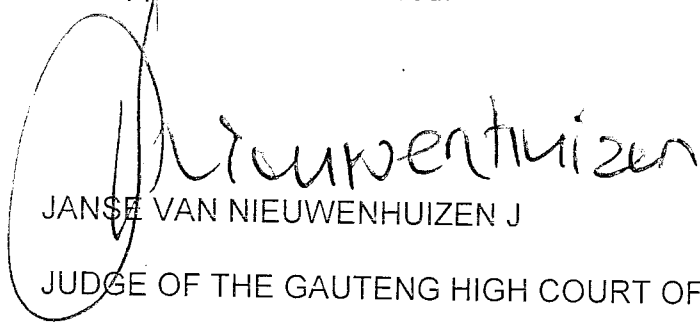 Nieuwenhuizen
JANSE VAN NIEUWENHUIZEN J
JUDGE OF THE GAUTENG HIGH COURT OF